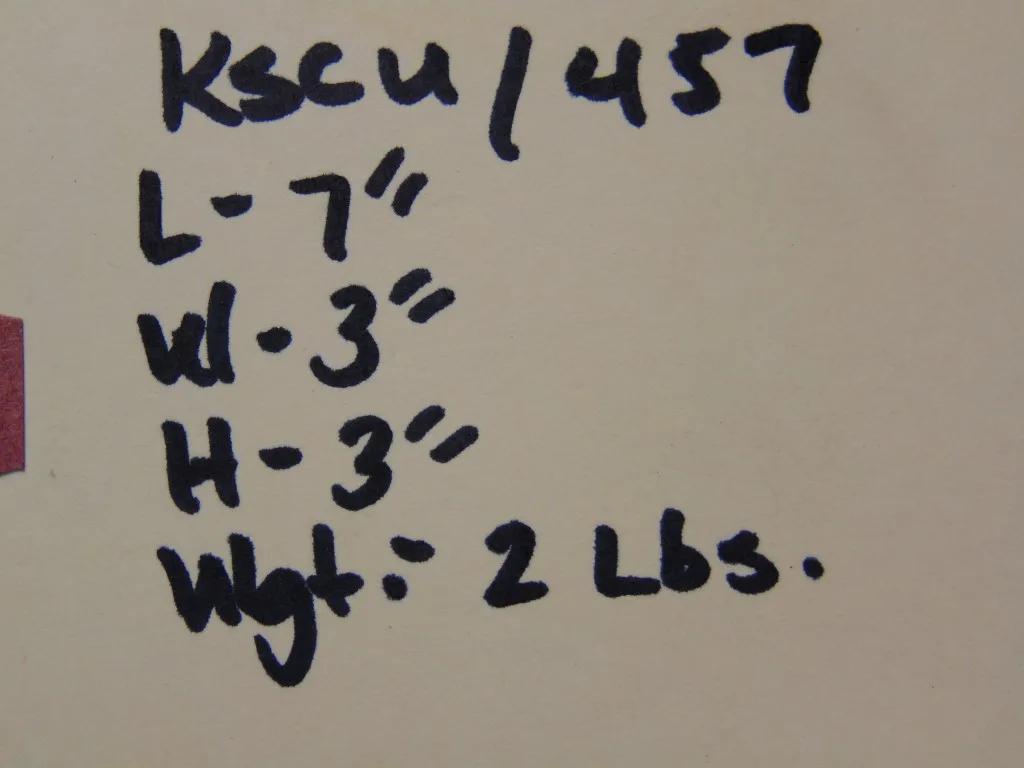 KSCU/457
L- 7"
W- 3"
H- 3"
Wgt.- 2 Lbs.